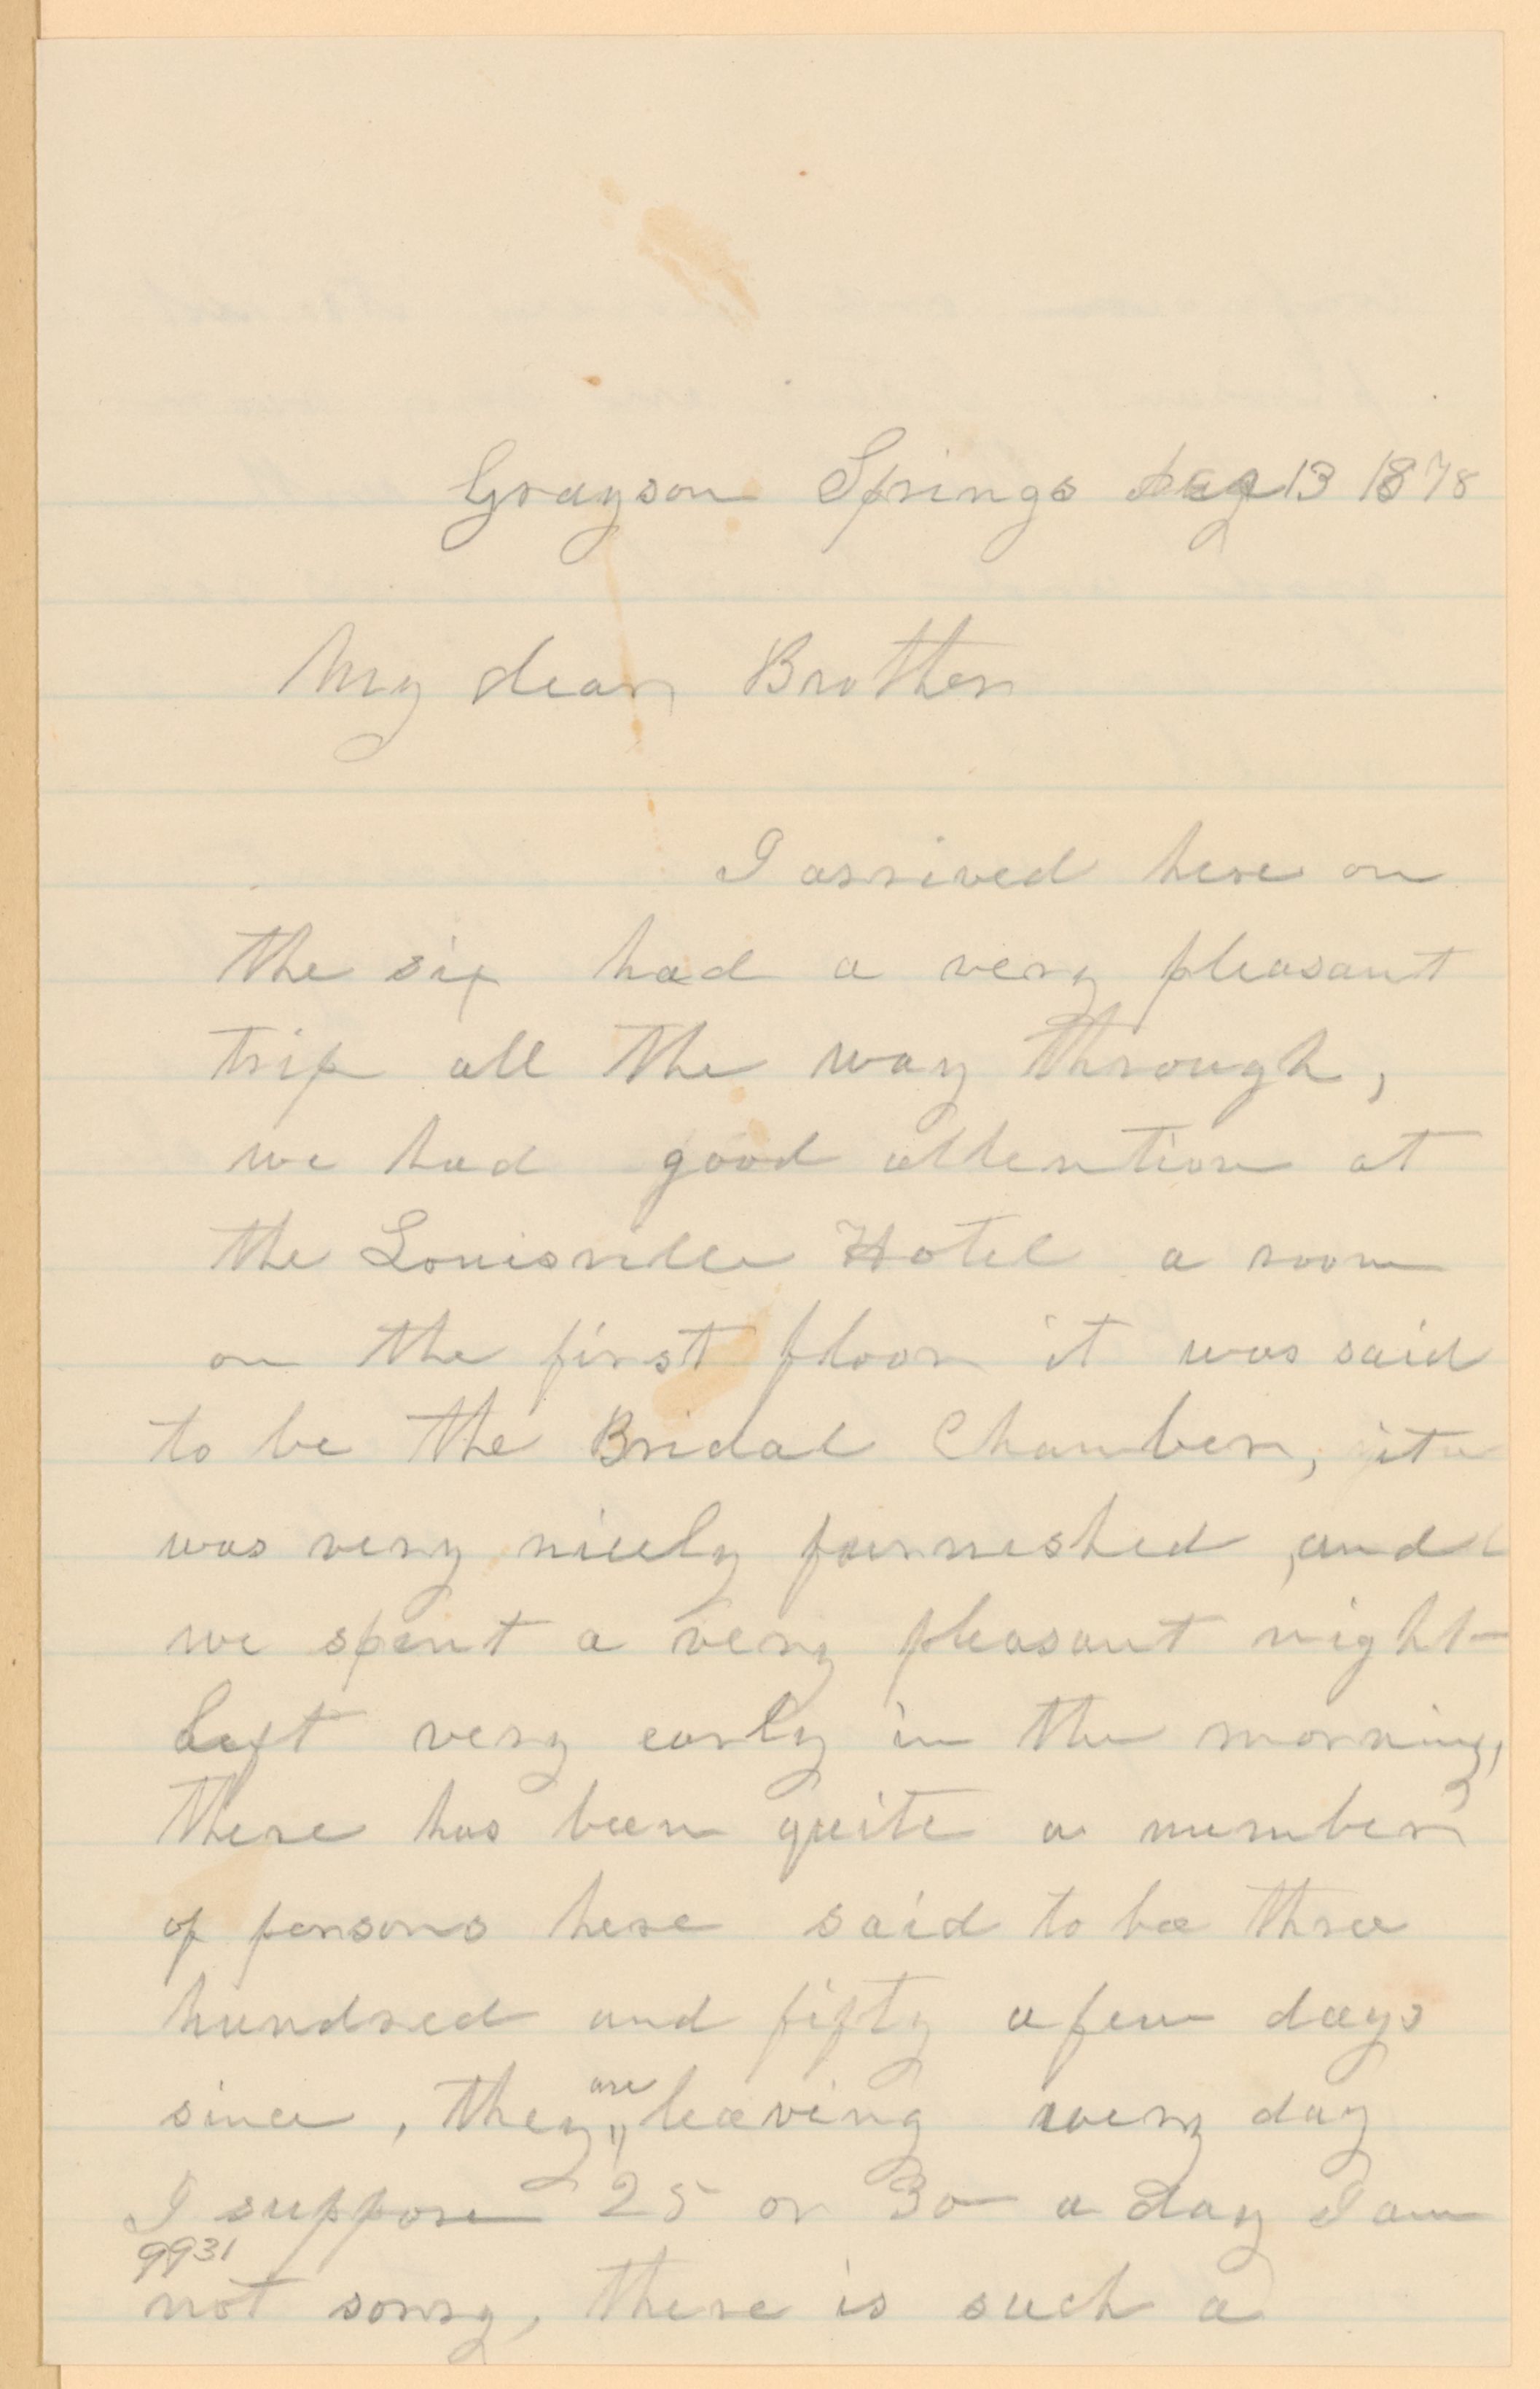 Grayson Springs Aug 13 1878
My dear Brother
I arrived here on
the six had a very pleasant
trip all the way through,
we had good attention at
the Louisville Hotel a room
on the first floor it was said
to be the Bridal Chamber, it
was very nicely furnished, and
we spent a very pleasant night
left very early in the morning,
There has been quite a number
of persons here said to be three
hundred and fifty a few days
since, they are leaving every day
I suppose 25 or 30 a day I am
9931
not sorry, there is such a